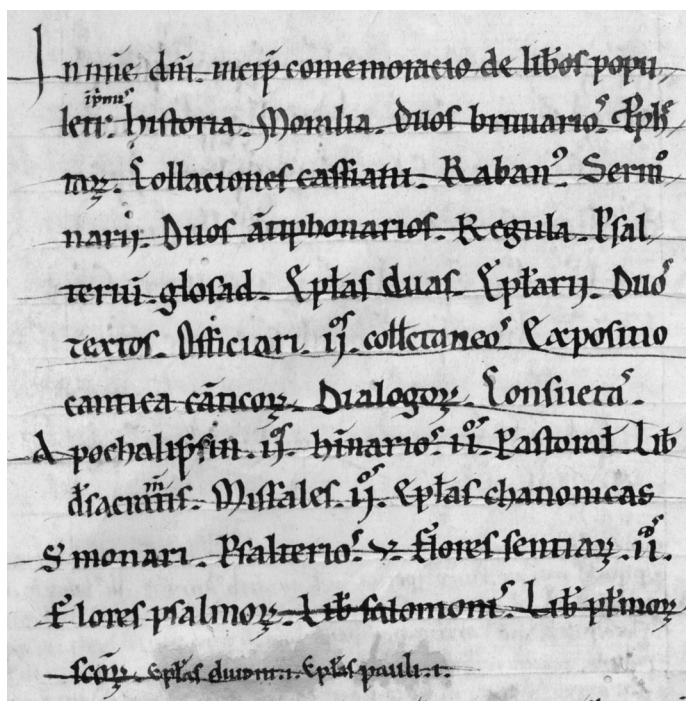 In nn̄e dn̄i. incip̄ comemoracio de libros popu
leti: historia. Moralia. Duos breuiarios. Ep̄l's
taȝ. Collaciones cassiani. Raban⁹. Sermo
narij. Duos ān̄phonarios. Regula. Psal
teriū. glosad. Ep̄l'as duas. Ep̄l'arij. Duos
textos. Officiari. ijos. coll'etaneos Exposicio
cantica cān̄coȝ. Dialogoȝ. Consuetas.
Apochalipsin. ijos. hīnarios. iios. Pastoral'. Lib
d'sacmn̄tis. Missales. ijos. Ep̄l'as chanonicas
Smonari. Psalterios. v. Flores sentiaȝ. iios.
Flores psalmoȝ. Lib' salomonis. Lib'
scōȝ. Epl'as Epl'as pauli. i.